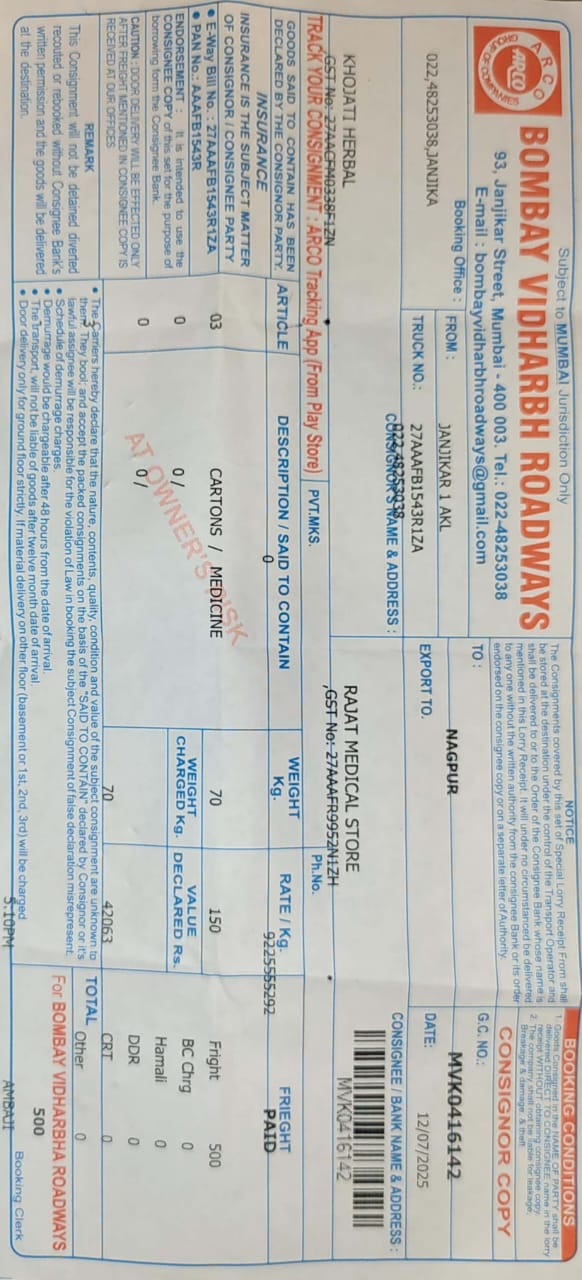 Subject to MUMBAI Jurisdiction Only
ARCO
GROUP OF COMPANIES
BOMBAY VIDHARBH ROADWAYS
93, Janjikar Street, Mumbai - 400 003. Tel.: 022-48253038
E-mail : bombayvidharbhroadways@gmail.com
NOTICE
The Consignments covered by this set of Special Lorry Receipt From shall
be stored at the destination under the control of the Transport Operator and
shall be delivered to or to the Order of the Consignee Bank whose name is
mentioned in this Lorry Receipt. It will under no circumstanced be delivered
to any one without the written authority from the consignee Bank or its order
endorsed on the consignee copy or on a separate letter of Authority.
BOOKING CONDITIONS
1. Goods Consigned in the NAME OF PARTY shall be
delivered DIRECT TO CONSIGNEE name in the lorry
receipt WITHOUT obtaining consignee copy.
2. The company shall not be liable for leakage,
Breakage & damage, & theft.
CONSIGNOR COPY
Booking Office :
022,48253038,JANJIKA
FROM :
JANJIKAR 1 AKL
TO :
NAGPUR
G.C. NO.:
MVK0416142
TRUCK NO.:
27AAAFB1543R1ZA
EXPORT TO.
DATE:
12/07/2025
022,48253038
CONSIGNOR'S NAME & ADDRESS :
CONSIGNEE / BANK NAME & ADDRESS :
KHOJATI HERBAL
,GST No: 27AACFM0338F1ZN
RAJAT MEDICAL STORE
,GST No: 27AAAFR9952N1ZH
MVK0416142
TRACK YOUR CONSIGNMENT : ARCO Tracking App (From Play Store)
PVT.MKS.
Ph.No.
GOODS SAID TO CONTAIN HAS BEEN
DECLARED BY THE CONSIGNOR PARTY.
INSURANCE
INSURANCE IS THE SUBJECT MATTER
OF CONSIGNOR / CONSIGNEE PARTY
• E-Way Bill No. : 27AAAFB1543R1ZA
• PAN No.: AAAFB1543R
ENDORSEMENT : It is intended to use the
CONSIGNEE COPY of this set for the purpose of
borrowing form the Consignee Bank.
CAUTION : DOOR DELIVERY WILL BE EFFECTED ONLY
AFTER FREIGHT MENTIONED IN CONSIGNEE COPY IS
RECEIVED AT OUR OFFICES
REMARK
This Consignment will not be detained diverted
recouted or rebooked without Consignee Bank's
written permission and the goods will be delivered
at the destination.
ARTICLE
DESCRIPTION / SAID TO CONTAIN
0
WEIGHT
Kg.
RATE / Kg.
9225555292
FRIEGHT
PAID
03
CARTONS / MEDICINE
70
150
Fright 500
0
0 /
WEIGHT
CHARGED Kg.
VALUE
DECLARED Rs.
BC Chrg 0
Hamali 0
0
0 /
DDR 0
AT OWNER'S RISK
70
42063
CRT 0
Other 0
• The Carriers hereby declare that the nature, contents, quality, condition and value of the subject consignment are unknown to
them. They bool; and accept the packed consignments on the basis of the "SAID TO CONTAIN" declared by Consignor or it's
lawful assignee will be responsible for the violation of Law in booking the subject Consignment of false declaration misrepresent.
• Schedule of demurrage charges.
• Demurrage would be chargeable after 48 hours from the date of arrival.
• The Transport, will not be liable of goods after twelve month date of arrival.
• Door delivery only for ground floor strictly. If material delivery on other floor (basement or 1st, 2nd, 3rd) will be charged
TOTAL
500
For BOMBAY VIDHARBHA ROADWAYS
5:10PM
AMBAJI
Booking Clerk